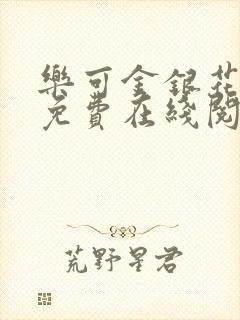 樂可金銀花
免費在綫閱
荒野星君